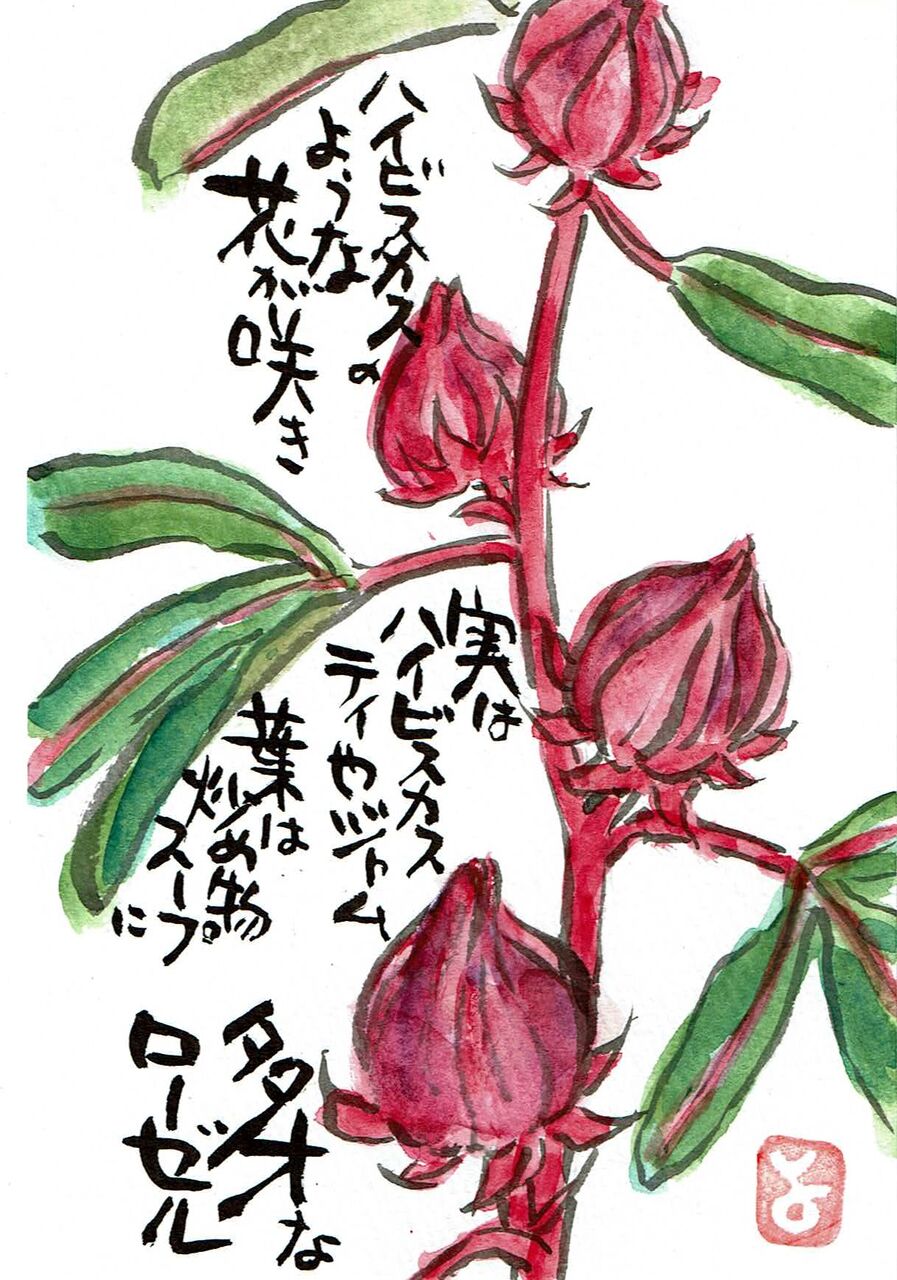 ハイビスカスの
ような
花が咲き
実は
ハイビスカス
ティやジャム
葉は
炒め物
スープ
に
多才な
ローゼル